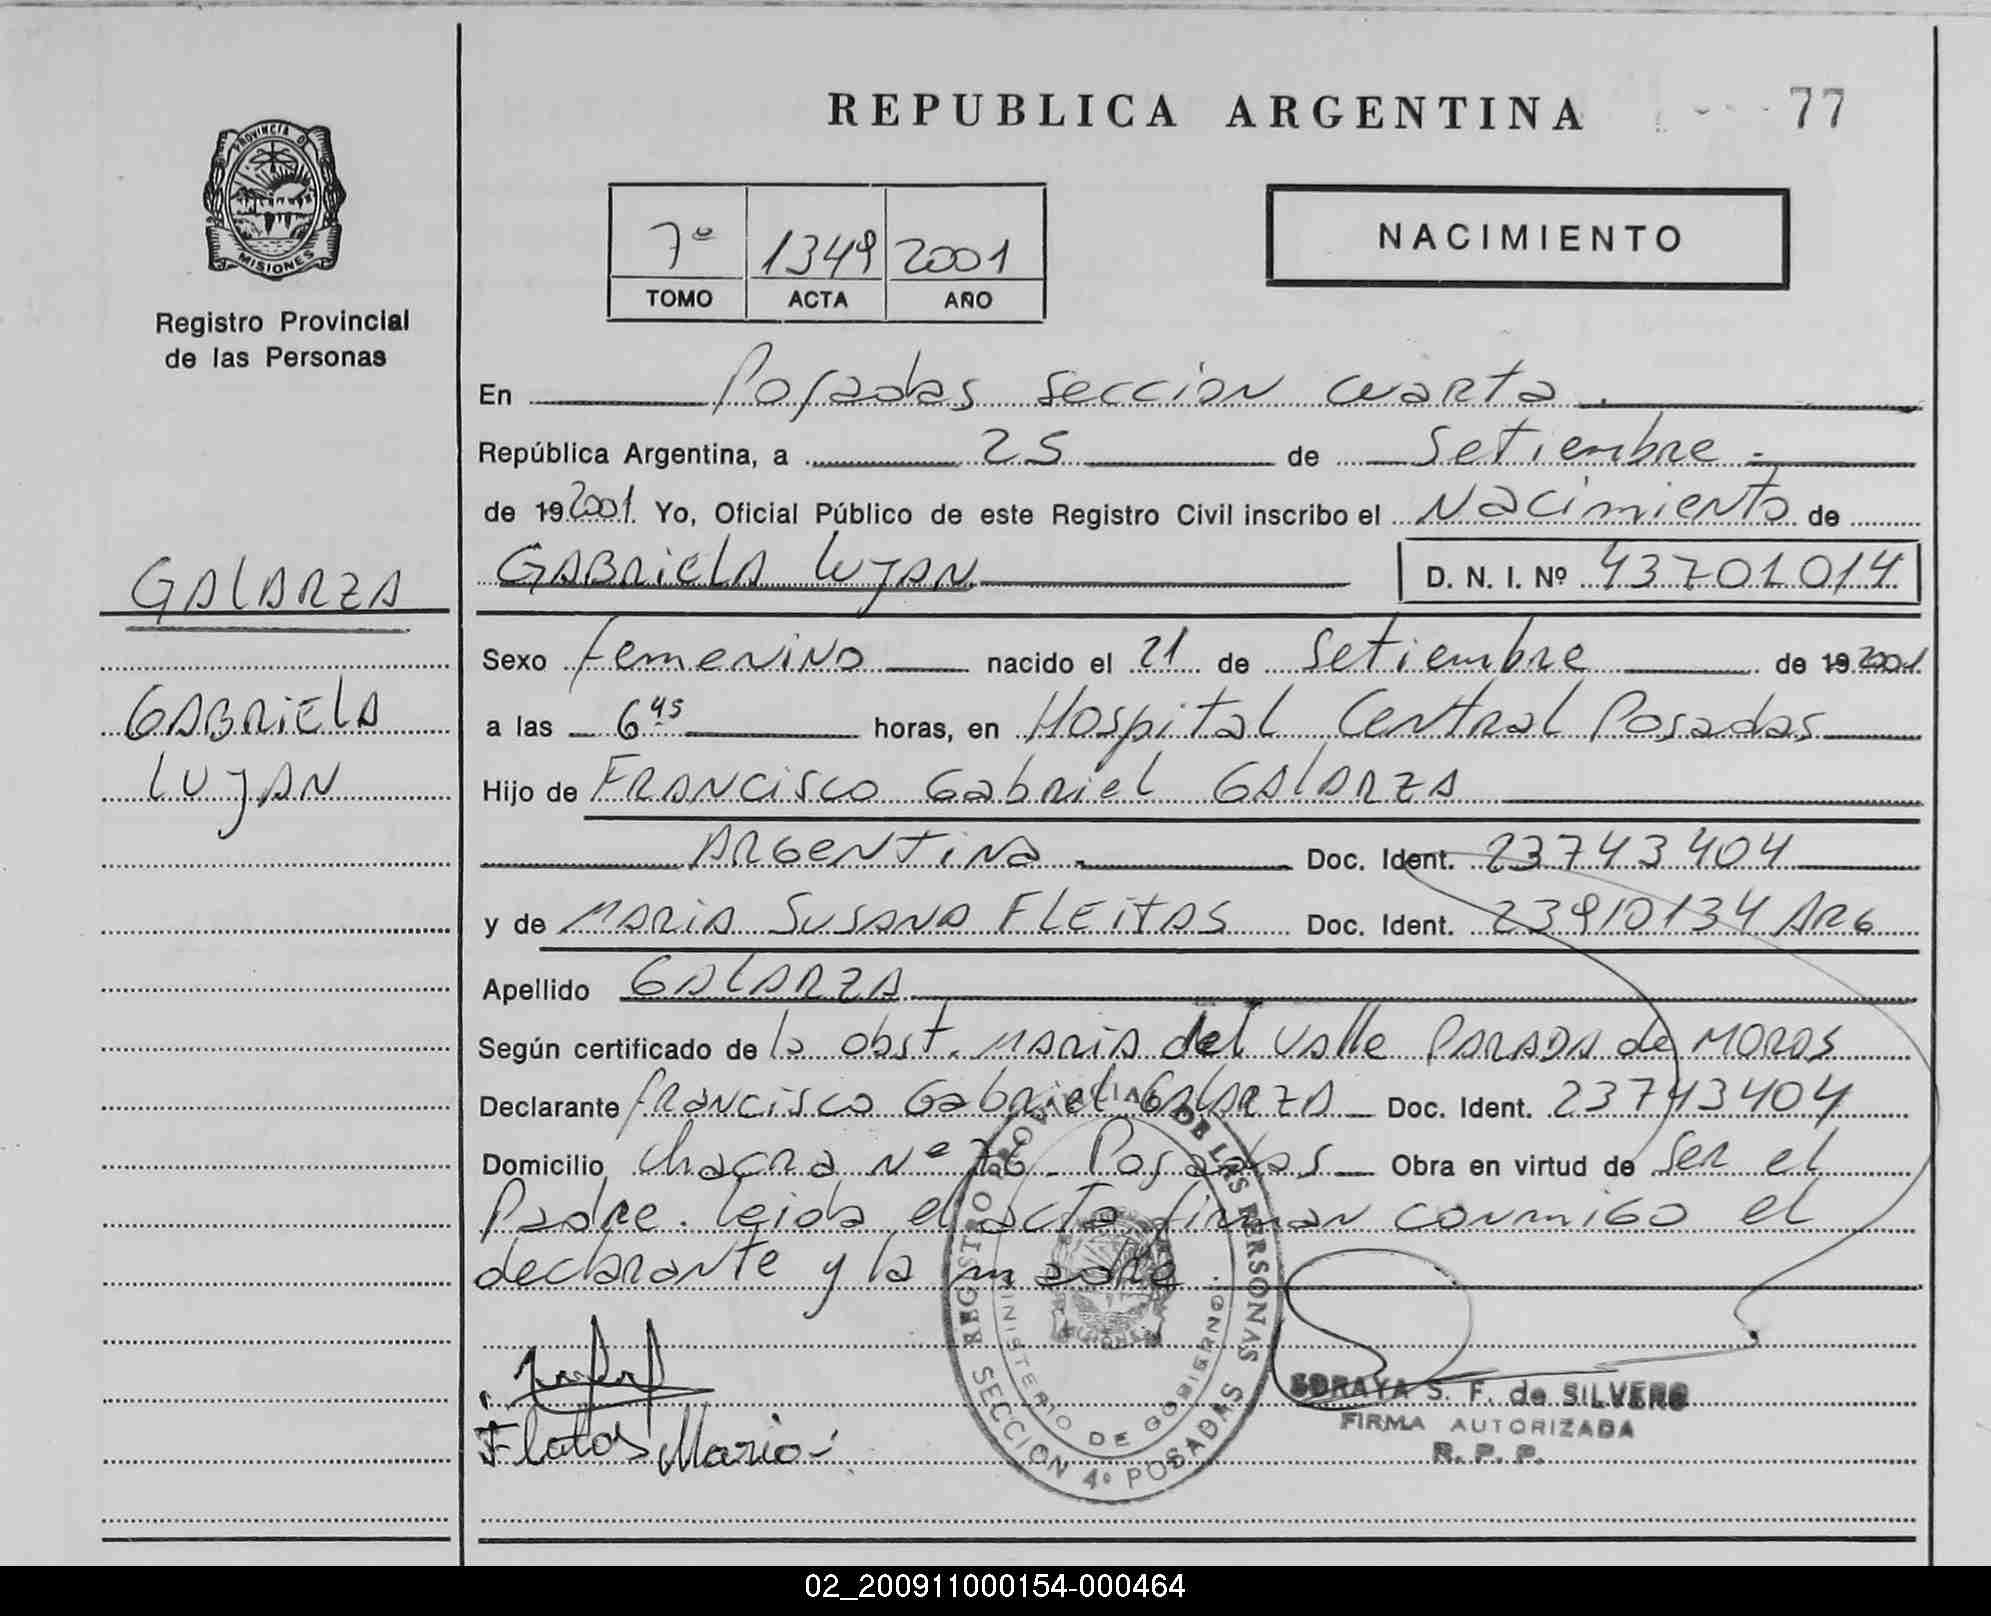 REPUBLICA ARGENTINA
77
PROVINCIA D
MISIONES
Registro Provincial
de las Personas
7º 1349 2001
TOMO ACTA AÑO
NACIMIENTO
En Posadas Sección cuarta.
República Argentina, a 25 de Setiembre.-
de 192001. Yo, Oficial Público de este Registro Civil inscribo el Nacimiento de
GABRIELA LUJAN D. N. I. Nº 43701014
GALARZA
GABRIELA
LUJAN
Sexo femenino nacido el 21 de Setiembre de 19 2001
a las 6 45 horas, en Hospital Central Posadas
Hijo de FRANCISCO Gabriel GALARZA
ARGENTINA.- Doc. Ident. 23743404
y de MARIA SUSANA FLEITAS Doc. Ident. 23910134 ARG
Apellido GALARZA
Según certificado de la obst. MARIA del Valle PARADA de MORAS
Declarante francisco Gabriel GALARZA Doc. Ident. 23743404
Domicilio chacra Nº 76 - Posadas Obra en virtud de Ser el
Padre. leida el acta firman conmigo el
declarante y la madre.
REGISTRO PROVINCIAL DE LAS PERSONAS
MINISTERIO DE GOBIERNO
SECCION 4º POSADAS
SORAYA S. F. de SILVERO
FIRMA AUTORIZADA
R. P. P.
Mario
02_200911000154-000464